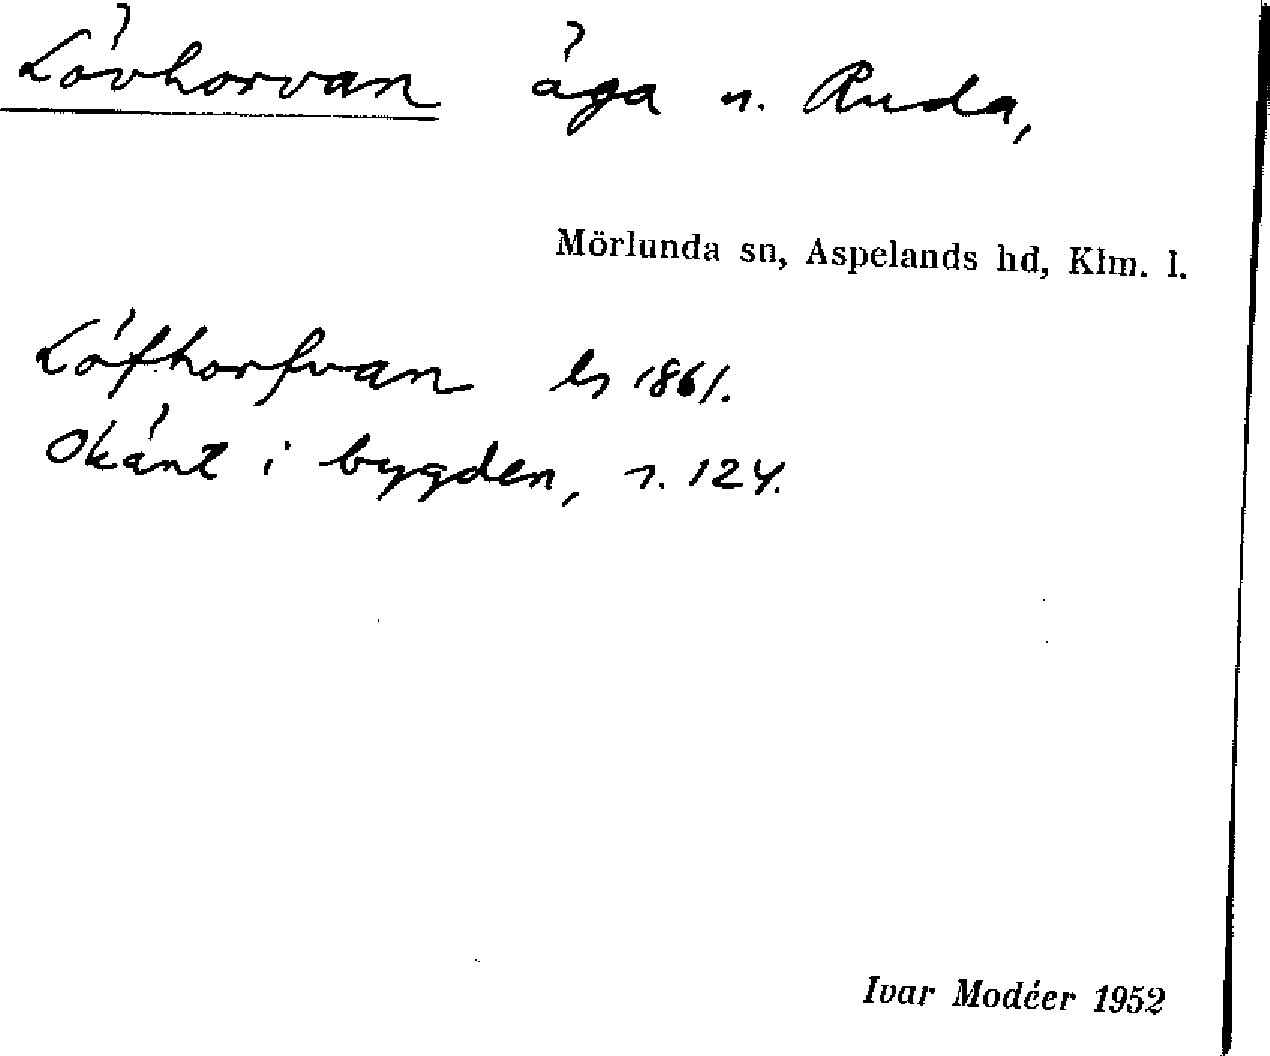 Lövhorvan äga n. Ruda,
Mörlunda sn, Aspelands hd, Klm. l.
Löfhorfvan ls 1861.
Okänt i bygden, n. 124.
Ivar Modéer 1952